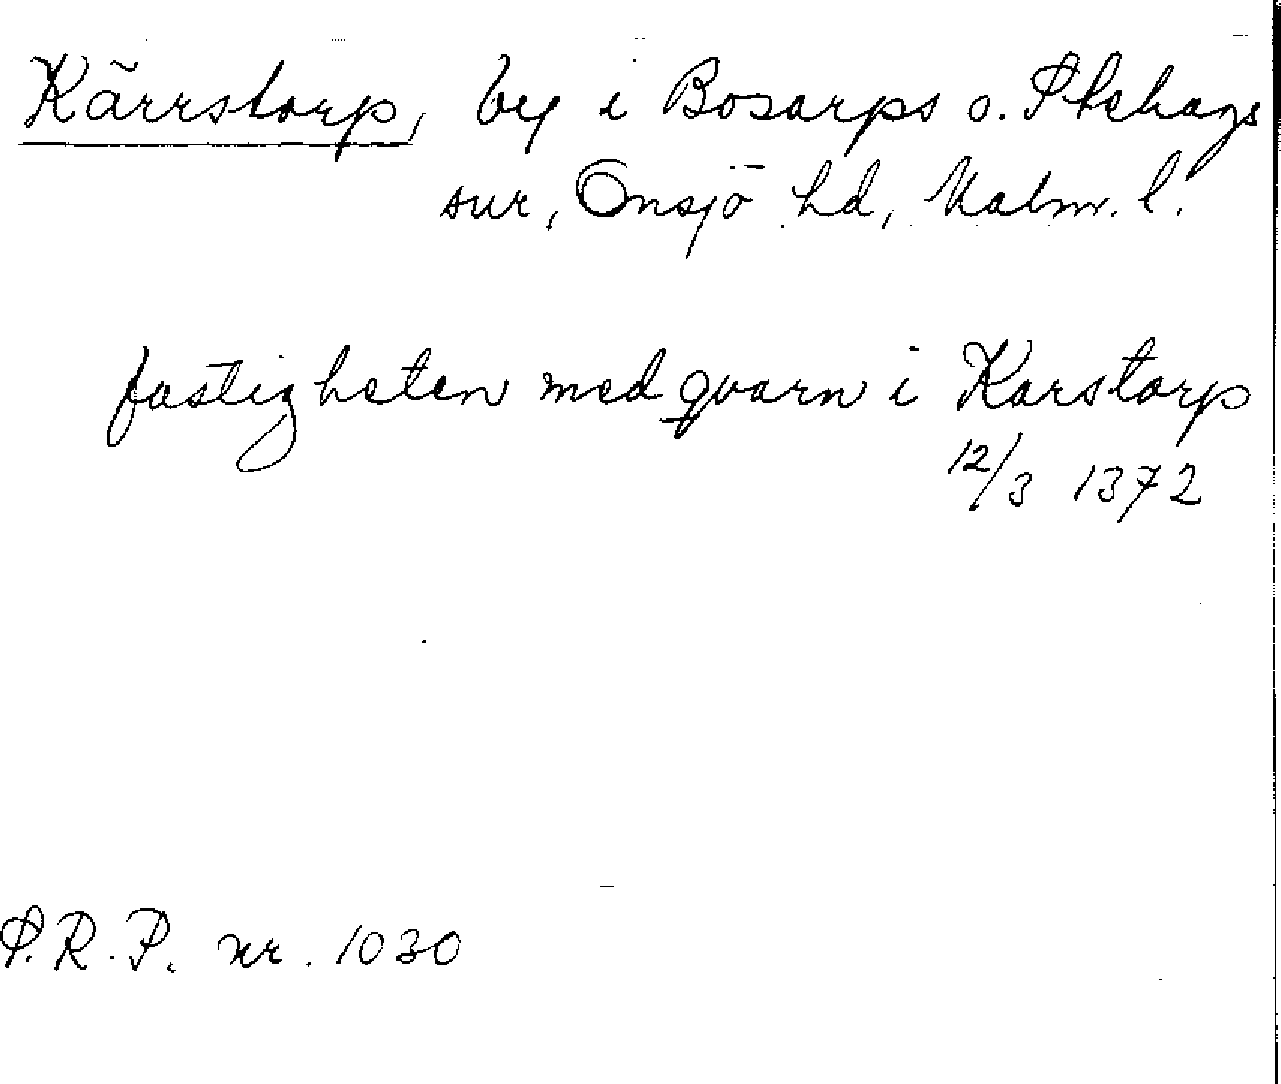 Kärrstorp, by i Bosarps o. Stehags
snr, Onsjö hd, Malm. l.
fastigheten med qvarn i Karstorp
12/3 1372
S.R.P. nr. 1030